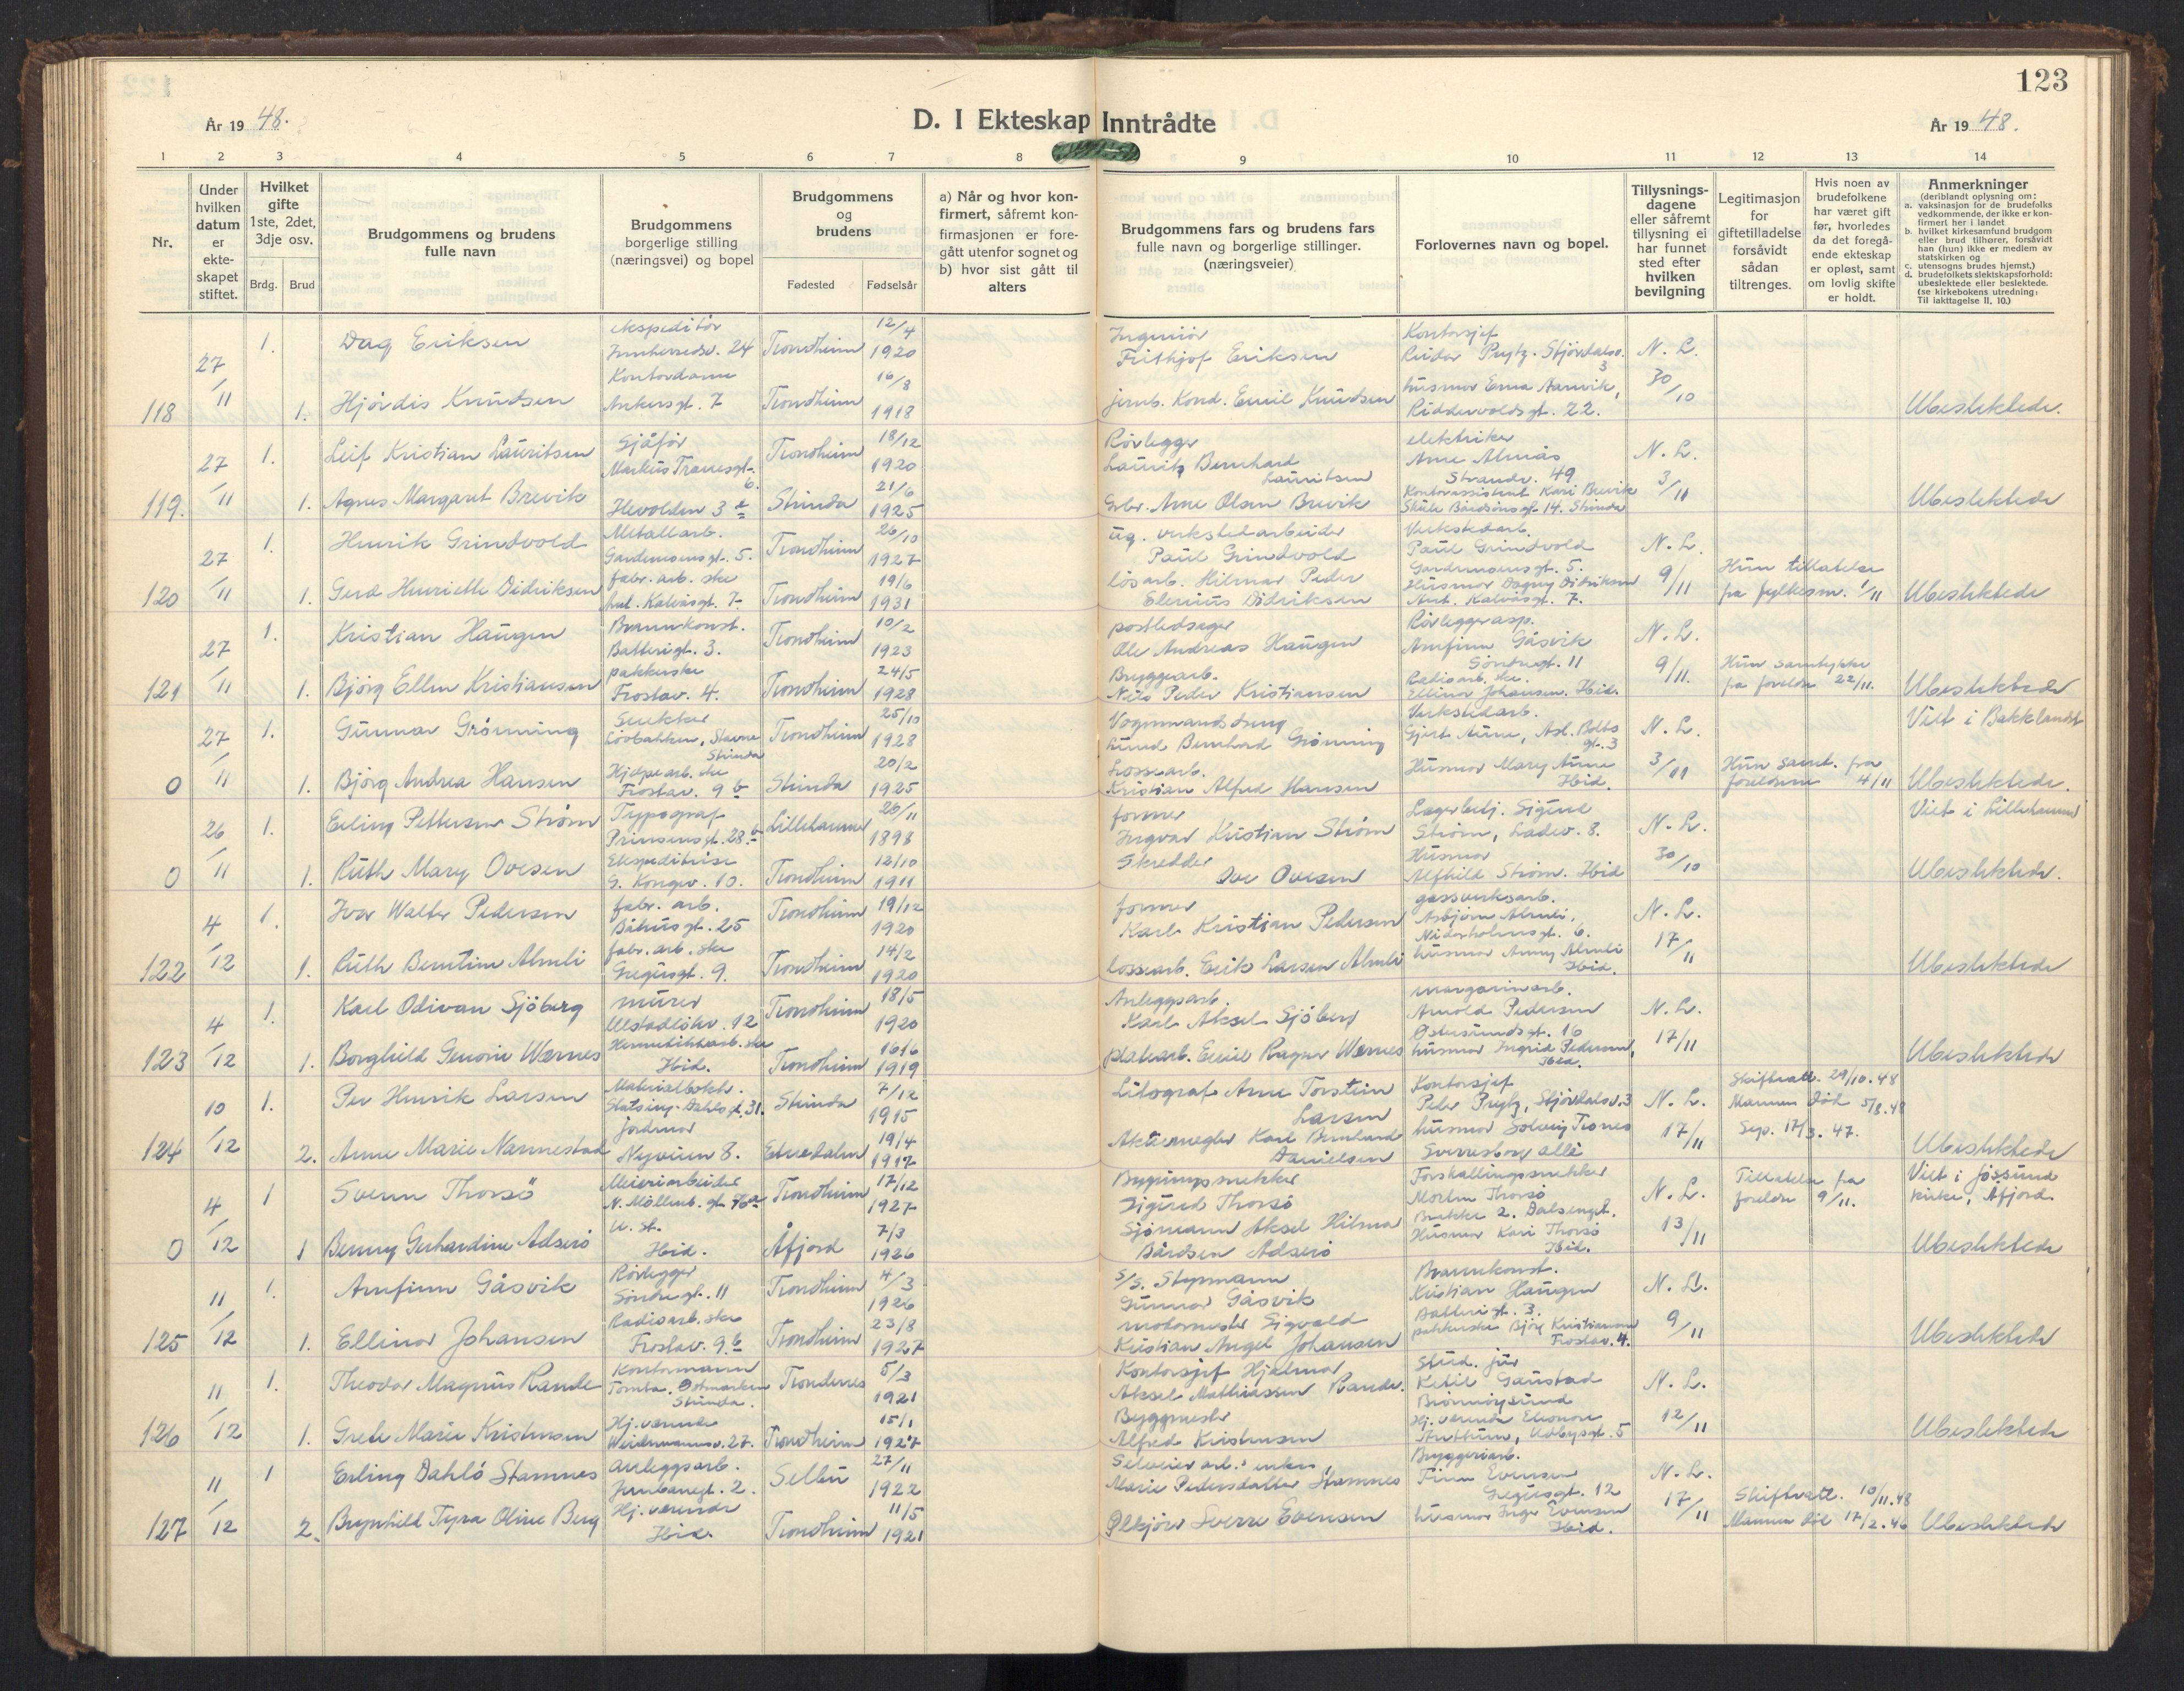 123
År 1948.
D. I Ekteskap Inntrådte
År 1948.
1 2 3 4 5 6 7 8 9 10 11 12 13 14
Nr.
Under hvilken datum er ekte-skapet stiftet.
Hvilket gifte 1ste, 2det, 3dje osv.
Brdg. Brud
Brudgommens og brudens fulle navn
Brudgommens borgerlige stilling (næringsvei) og bopel
Brudgommens og brudens
Fødested Fødselsår
a) Når og hvor kon-firmert, såfremt kon-firmasjonen er fore-gått utenfor sognet og b) hvor sist gått til alters
Brudgommens fars og brudens fars fulle navn og borgerlige stillinger. (næringsveier)
Forlovernes navn og bopel.
Tillysnings-dagene eller såfremt tillysning ei har funnet sted efter hvilken bevilgning
Legitimasjon for giftetilladelse forsåvidt sådan tiltrenges.
Hvis noen av brudefolkene har været gift før, hvorledes da det foregå-ende ekteskap er opløst, samt om lovlig skifte er holdt.
Anmerkninger
(deriblandt oplysning om:
a. vaksinasjon for de brudefolks vedkommende, der ikke er kon-firmert her i landet
b. hvilket kirkesamfund brudgom eller brud tilhører, forsåvidt han (hun) ikke er medlem av statskirken og
c. utensogns brudes hjemst,)
d. brudefolkets slektskapsforhold: ubeslektede eller beslektede. (se kirkebokens utredning: Til iakttagelse II, 10.)
118 27/11 1. Dag Eriksen ekspeditør Innherredsv. 24 Trondheim 12/4 1920 Ingeniør Frithjof Eriksen Kontorsjef Prytz. Stjørdalsv. 3 N. L.
1. Hjørdis Knudsen Kontordame Ankersgt. 7 Trondheim 16/8 1918 jernb. Kond. Emil Knudsen husmor Erna Aanvik, Riddervoldsgt. 22. 30/10 Ubeslektede.
119. 27/11 1. Leif Kristian Lauritsen Sjåfør Markus Tranesgt. 6. Trondheim 18/12 1920 Rørlegger Lauritz Bernhard Lauritsen elektriker Arne Almås Strandv. 49 N. L.
1. Agnes Margaret Brevik Hevolden 3 a Strinda 21/6 1925 Grbr. Arne Olsen Brevik Kontorassistent Kari Brevik Skule Bårdsonsgt. 14. Strinda 3/11 Ubeslektede
120 27/11 1. Henrik Grindvold Metallarb. Gardemoensgt. 5. Trondheim 26/10 1927 ug. verkstedarbeider Paul Grindvold Verkstedarb. Paul Grindvold Gardemoensgt. 5. N. L.
1. Gerd Henriette Didriksen fabr. arb. ske Ant. Kalvåsgt. 7. Trondheim 19/6 1931 løsarb. Hilmar Peder Elenius Didriksen Husmor Dagny Didriksen Ant. Kalvåsgt. 7. 9/11 Hun tillatelse fra fylkesm. 1/11 Ubeslektede
121 27/11 1. Kristian Haugen Brannkonst. Batterigt. 3. Trondheim 10/2 1923 postledsager Ole Andreas Haugen Rørleggerasp. Arnfinn Gåsvik Søndregt. 11 N. L.
1. Bjørg Ellen Kristiansen pakkerske Frostav. 4. Trondheim 24/5 1928 Bryggearb. Nils Peder Kristiansen Radioarb. ske. Ellinor Johansen. Ibid. 9/11. Hun samtykke fra foreldre 22/11. Ubeslektede
0 27/11 1. Gunnar Grønning Snekker Løvbakken, Stavne Strinda Trondheim 25/10 1928 Vognmandsdreng Bernhard Grønning Verkstedarb. Gjert Aune, Asl. Bolts gt. 3 N. L. Viet i Bakklandet
1. Bjørg Andrea Hansen Hjelpearb. ske Frostav. 9 b Strinda 20/2 1925 Lossearb. Kristian Alfred Hansen Husmor Mary Aune Ibid. 3/11 Hun samt. fra foreldrene 4/11 Ubeslektede.
0 26/11 1. Erling Pettersen Strøm Typograf Prinsensgt. 28. b Lillehammer 20/11 1898 former Ingvar Kristian Strøm Lagerbetj. Sigurd Strøm, Ladev. 8. N. L. Viet i Lillehammer
1. Ruth Mary Ovesen Ekspeditrise G. Kongev. 10. Trondheim 12/10 1911 Skredder Ove Ovesen Husmor Alfhild Strøm. Ibid 30/10 Ubeslektede.
122 4/12 1. Ivar Walter Pedersen fabr. arb. Båhusgt. 25 Trondheim 19/12 1920 former Karl Kristian Pedersen gassverksarb. Asbjørn Almli. Nidarholmsgt. 6. N. L.
1. Ruth Berntine Almli fabr. arb. ske Gregusgt. 9. Trondheim 14/2 1920 lossearb. Erik Larsen Almli husmor Anny Almli Ibid. 17/11 Ubeslektede
123 4/12 1. Karl Odivan Sjöberg murer Ulstadløkv. 12 Trondheim 18/5 1920 Anleggsarb. Karl Aksel Sjöberg margarinarb. Arnold Pedersen Østersundsgt. 16 N. L.
1. Borghild Wærnes Hermetikkarb. ske Ibid. Trondheim 16/6 1919 platearb. Emil Ragnar Wærnes husmor Ingrid Pedersen, Ibid. 17/11 Ubeslektede
124 10/12 1. Per Henrik Larsen Materialbokh. Statsing. Dahlsgt. 31. Strinda 7/12 1915 Litograf Arne Torstein Larsen Kontorsjef Peder Prytz, Stjørdalsv. 3 N. L. Skifteatt. 29/10.48 Mannen død 5/8.48
2. Anne Marie Nannestad jordmor Nyveien 8. Etnedalen 19/4 1917 Aktiemegler Karl Bernhard Danielsen husmor Solveig Trones Sverresborg allé 17/11 Sep. 17/3. 47. Ubeslektede
0 4/12 1 Svenn Thorsö Meieriarbeider N. Möllenb. gt. 76 a Trondheim 17/12 1927 Bygningssnekker Sigurd Thorsö Forskallingssnekker Morten Thorsö Brekke 2. Dalsenget. N. L. Tillatelse fra foreldre 9/11. Viet i Jössund kirke, Åfjord
1 Benny Gerhardine Adserö u. st. Ibid. Åfjord 7/3 1926 Sjømann Aksel Hilmar Bårdsen Adserö Husmor Kari Thorsö Ibid. 13/11 Ubeslektede
125 11/12 1. Arnfinn Gåsvik Rørlegger Søndregt. 11 Trondheim 4/3 1926 S/S. Styrmann Gunnar Gåsvik Brannkonst. Kristian Haugen Batterigt. 3. N. L.
1. Ellinor Johansen Radioarb. ske Frostav. 9. b Trondheim 23/8 1927 motormester Sigvald Kristian Angel Johansen pakkerske Bjørg Kristiansen Frostav. 4. 9/11 Ubeslektede
126 11/12 1. Theodor Magnus Rande Kontormann Tomta, Østmarken Strinda. Trondenes 5/3 1921 Kontorsjef Hjalmar Aksel Mathiassen Rande. Stud. jur Ketil Gaustad Brønnøysund N. L.
1. Grete Marie Kristensen Hj. værende Weidemannsv. 27. Trondheim 15/1 1927 Byggmester Alfred Kristensen Hj. værende Eleonore Anthun, Udbysgt. 5 12/11 Ubeslektede
127 11/12 1 Erling Dahlö Stamnes anleggsarb. Jernbanegt. 2. Selbu 27/11 1922 Selveier arb. enke, Marie Pedersdatter Stamnes Bryggeriarb. Finn Evensen Gregusgt. 12 N. L.
2. Brynhild Tyra Oline Berg Hj. værende Ibid. Trondheim 11/5 1921 Ølkjører Sverre Evensen husmor Inger Evensen Ibid. 17/11 Skifteatt. 10/11.48 Mannen död 17/2.46 Ubeslektede